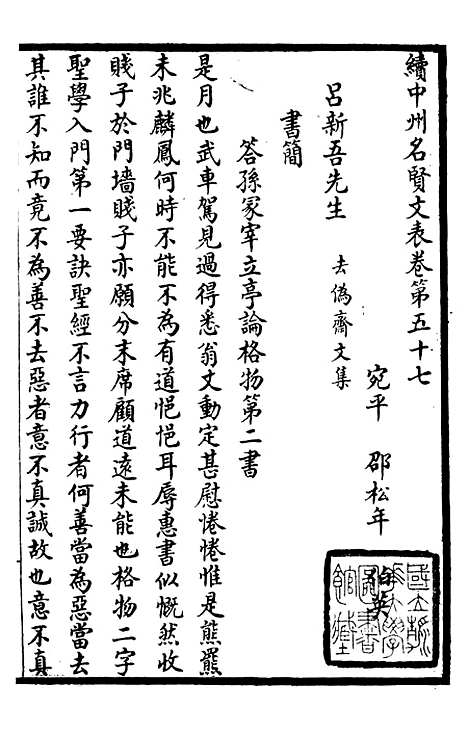 續中州名賢文表卷第五十七
宛平 邵松年 伯英
呂新吾先生 去僞齋文集
書簡
答孫冢宰立亭論格物第二書
是月也武車駕見過得悉翁丈動定甚慰惓惓惟是熊羆
未兆麟鳳何時不能不為有道悒悒耳辱惠書似慨然收
賤子於門墻賤子亦願分末席顧道遠未能也格物二字
聖學入門第一要訣聖經不言力行者何善當為惡當去
其誰不知而竟不為善不去惡者意不真誠故也意不真